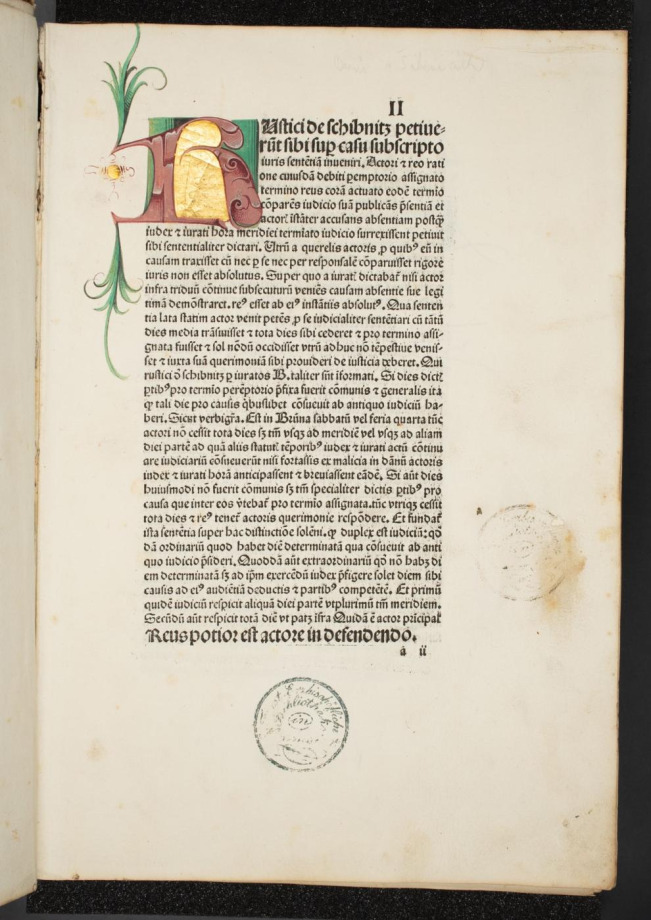 II
RUstici de schibnitz petiue-
rūt sibi sup casu subscripto
iuris sentētiā inueniri. Actori ⁊ reo rati
one cuiusdā debiti ꝑemptorio assignato
termino reus corā actuato eodē termīo
cōparēs iudicio suā publicās p̄sentiā et
actor istāter accusans absentiam postꝙ̄
iudex ⁊ iurati hora meridiei termīato iudicio surrexissent petiuit
sibi sententialiter dictari. Vtrū a querelis actoris ꝓ quibꝰ eū in
causam traxisset cū nec ꝑ se nec per responsalē cōparuisset rigore
iuris non esset absolutus. Super quo a iuratꝭ dictabatꝭ nisi actor
infra triduū cōtinue subsecuturū veniēs causam absentie sue legi
timā demōstraret. reꝰ esset ab eiꝰ instātiis absolutꝰ. Qua senten
tia lata statim actor venit petēs ꝓ se iudicialiter sentētiari cū tātū
dies media trāsiuisset ⁊ tota dies sibi cederet ⁊ pro termino assi-
gnata fuisset ⁊ sol nōdū occidisset vtrū adhuc nō tēpestiue venis-
set ⁊ iuxta suā querimoniā sibi prouideri de iusticia deberet. Qui
rustici ō schibnitz ꝑ iuratos B. taliter sūt īformati. Si dies dictꝭ
ꝑtibꝰ pro termīo perēptorio p̄fixa fuerit cōmunis ⁊ generalis ita
ꝙ tali die pro causis ꝗbuslibet cōsueuit ab antiquo iudiciū ha-
beri. Sicut verbigr̄a. Est in Brūna sabbatū vel feria quarta tūc
actori nō cessit tota dies sꝫ tm̄ vsqꝫ ad meridiē vel vsqꝫ ad aliam
diei partē ad quā aliis statutꝭ tēporibꝰ iudex ⁊ iurati actū cōtinu
are iudiciariū cōsueuerūt nisi fortassis ex malicia in dānū actoris
iudex ⁊ iurati horā anticipassent ⁊ breuiassent eādē. Si aūt dies
huiusmodi nō fuerit cōmunis sꝫ tm̄ specialiter dictis ꝑtibꝰ pro
causa que inter eos v̄tebatꝭ pro termīo assignata. tūc vtriqꝫ cessit
tota dies ⁊ reꝰ tenetꝭ actoris querimonie respōdere. Et fundatꝭ
ista sentētia super hac distinctiōe solēni. ꝙ duplex est iudiciū: qd̄
dā ordinariū quod habet diē determinatā qua cōsueuit ab anti
quo iudicio p̄sideri. Quoddā aūt extraordinariū qd̄ nō habꝫ di
em determinatā sꝫ ad ip̄m exercēdū iudex p̄figere solet diem sibi
causis ad eiꝰ audiētiā deductis ⁊ partibꝰ competētē. Et primū
quidē iudiciū respicit aliquā diei partē vtplurimū tm̄ meridiem.
Secūdū aūt respicit totā diē vt patꝫ īfra Quidā ē actor prīcipalꝭ
Reus potior est actore in defendendo.
a ii